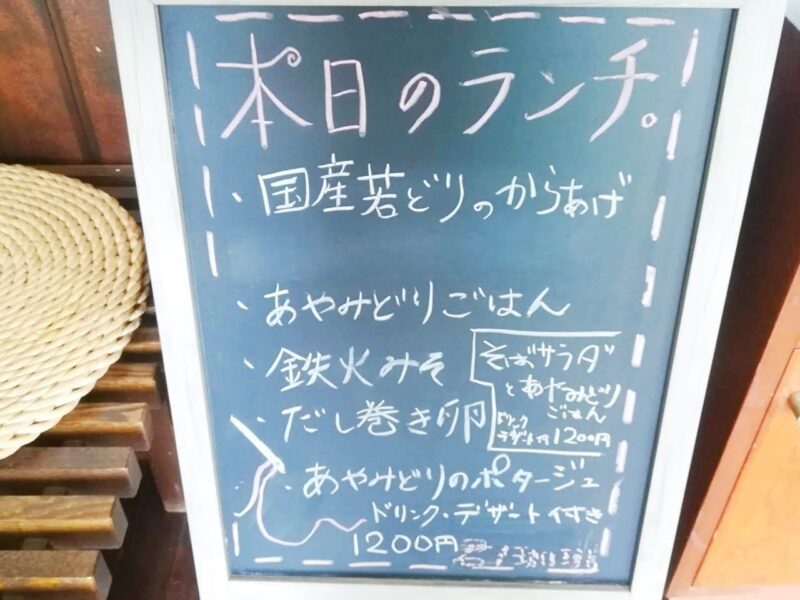 本日のランチ。
・国産若どりのからあげ
・あやみどりごはん
・鉄火みそ
・だし巻き卵
・あやみどりのポタージュ
ドリンク・デザート付き
1200円
そばサラダ
とあやみどり
ごはん
ドリンク
デザート付1200円